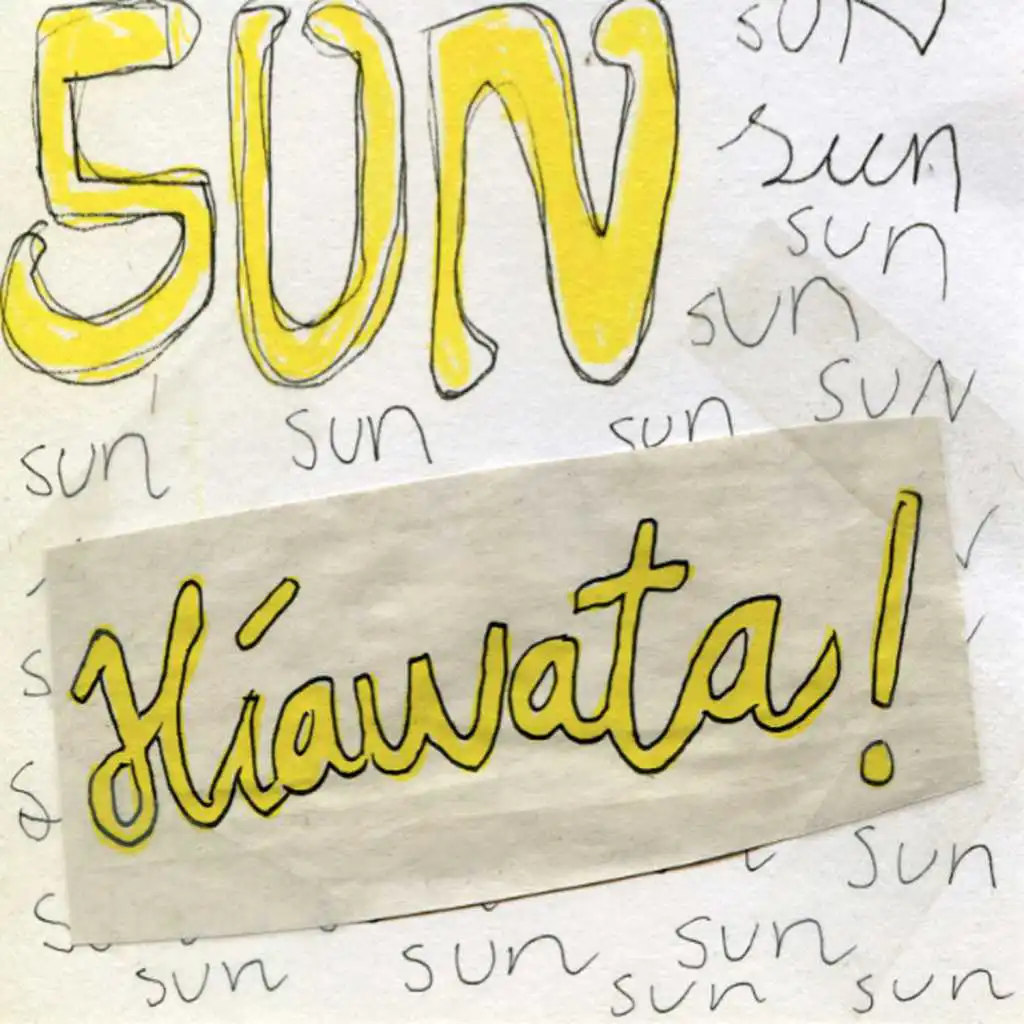 SUN
sun
sun
sun
sun
sun
sun
sun
sun
Híawata!
sun
sun
sun
sun
sun
sun